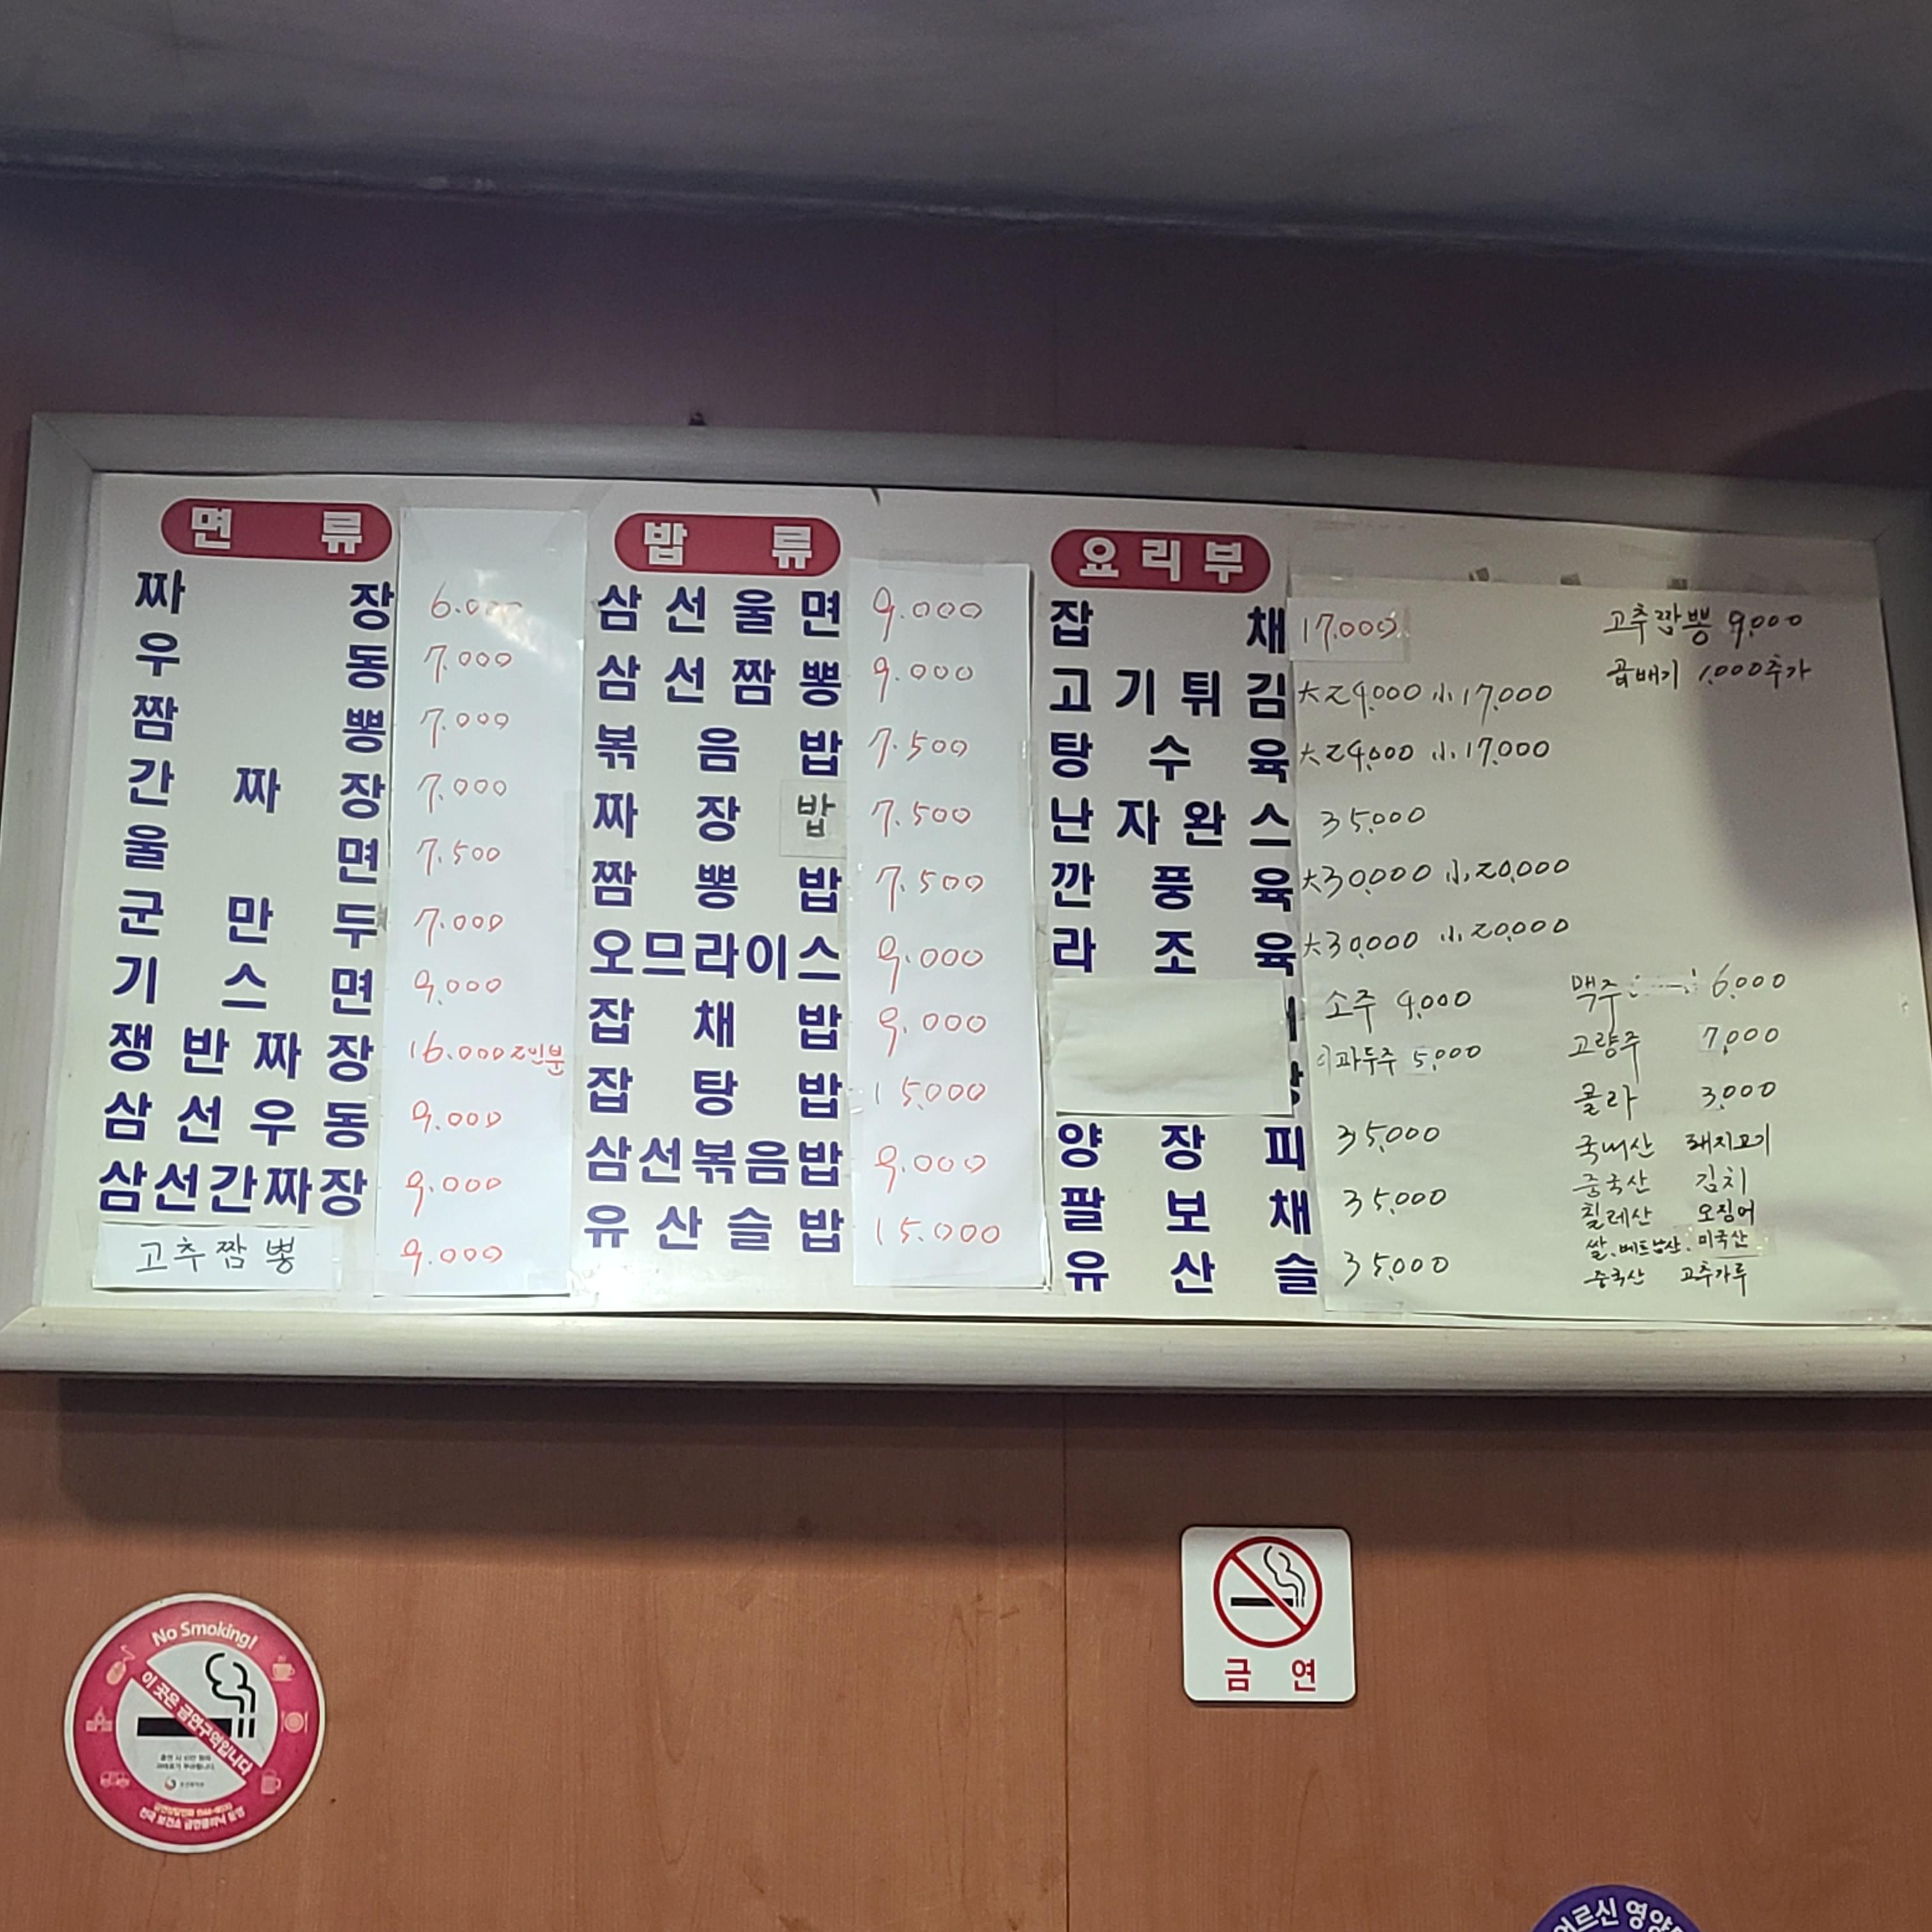 면류
짜장 6.000
우동 7.000
짬뽕 7.000
간짜장 7.000
울면 7.500
군만두 7.000
기스면 9.000
쟁반짜장 16.000 2인분
삼선우동 9.000
삼선간짜장 9.000
고추짬뽕 9.000
밥류
삼선울면 9.000
삼선짬뽕 9.000
볶음밥 7.500
짜장밥 7.500
짬뽕밥 7.500
오므라이스 9.000
잡채밥 9.000
잡탕밥 15.000
삼선볶음밥 9.000
유산슬밥 15.000
요리부
잡채 17.000
고기튀김 大24,000 小17,000
탕수육 大24,000 小17,000
난자완스 35,000
깐풍육 大30,000 小20,000
라조육 大30,000 小20,000
소주 4,000
이과두주 5,000
양장피 35,000
팔보채 35,000
유산슬 35,000
고추짬뽕 9,000
곱배기 1,000추가
맥주 6,000
고량주 7,000
콜라 3,000
국내산 돼지고기
중국산 김치
칠레산 오징어
쌀.베트남산.미국산
중국산 고추가루
No Smoking!
이 곳은 금연구역입니다
금연
어르신 영양